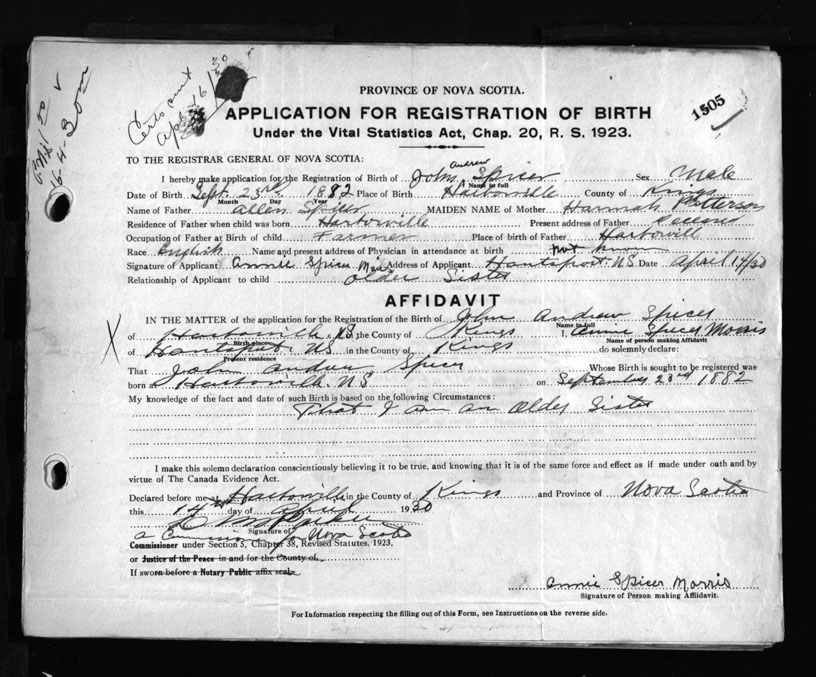 1505
Certs sent
Apr 16/30
16-4-30
PROVINCE OF NOVA SCOTIA.
APPLICATION FOR REGISTRATION OF BIRTH
Under the Vital Statistics Act, Chap. 20, R. S. 1923.
TO THE REGISTRAR GENERAL OF NOVA SCOTIA:
I hereby make application for the Registration of Birth of John Andrew Spicer Sex Male
Name in full
Date of Birth Sept. 23rd 1882 Place of Birth Harborville County of Kings
Month Day Year
Name of Father Allen Spicer MAIDEN NAME of Mother Hannah Patterson
Residence of Father when child was born Harborville Present address of Father
Occupation of Father at Birth of child Farmer Place of birth of Father Harborvill
Race English Name and present address of Physician in attendance at birth not known
Signature of Applicant Annie Spicer Address of Applicant Hantsport. N.S. Date April 14/30
Relationship of Applicant to child older Sister
AFFIDAVIT
IN THE MATTER of the application for the Registration of the Birth of John Andrew Spicer
Name in full
of Harborville N.S. in the County of Kings I, Annie Spicer Morris
Birth place
Name of person making Affidavit
of Hantsport. N.S in the County of Kings do solemnly declare:
Present residence
That John Andrew Spicer Whose Birth is sought to be registered was
born at Harborville. N.S on September 23rd 1882
My knowledge of the fact and date of such Birth is based on the following Circumstances:
That I am an Older Sister
I make this solemn declaration conscientiously believing it to be true, and knowing that it is of the same force and effect as if made under oath and by
virtue of The Canada Evidence Act.
Declared before me at Harborville in the County of Kings and Province of Nova Scotia
this 14th day of April 1930
Signature of
a Commissioner for Nova Scotia
Commissioner under Section 5, Chapter 38, Revised Statutes, 1923,
or Justice of the Peace in and for the County of
If sworn before a Notary Public affix seal.
Annie Spicer Morris
Signature of Person making Affidavit.
For Information respecting the filling out of this Form, see Instructions on the reverse side.